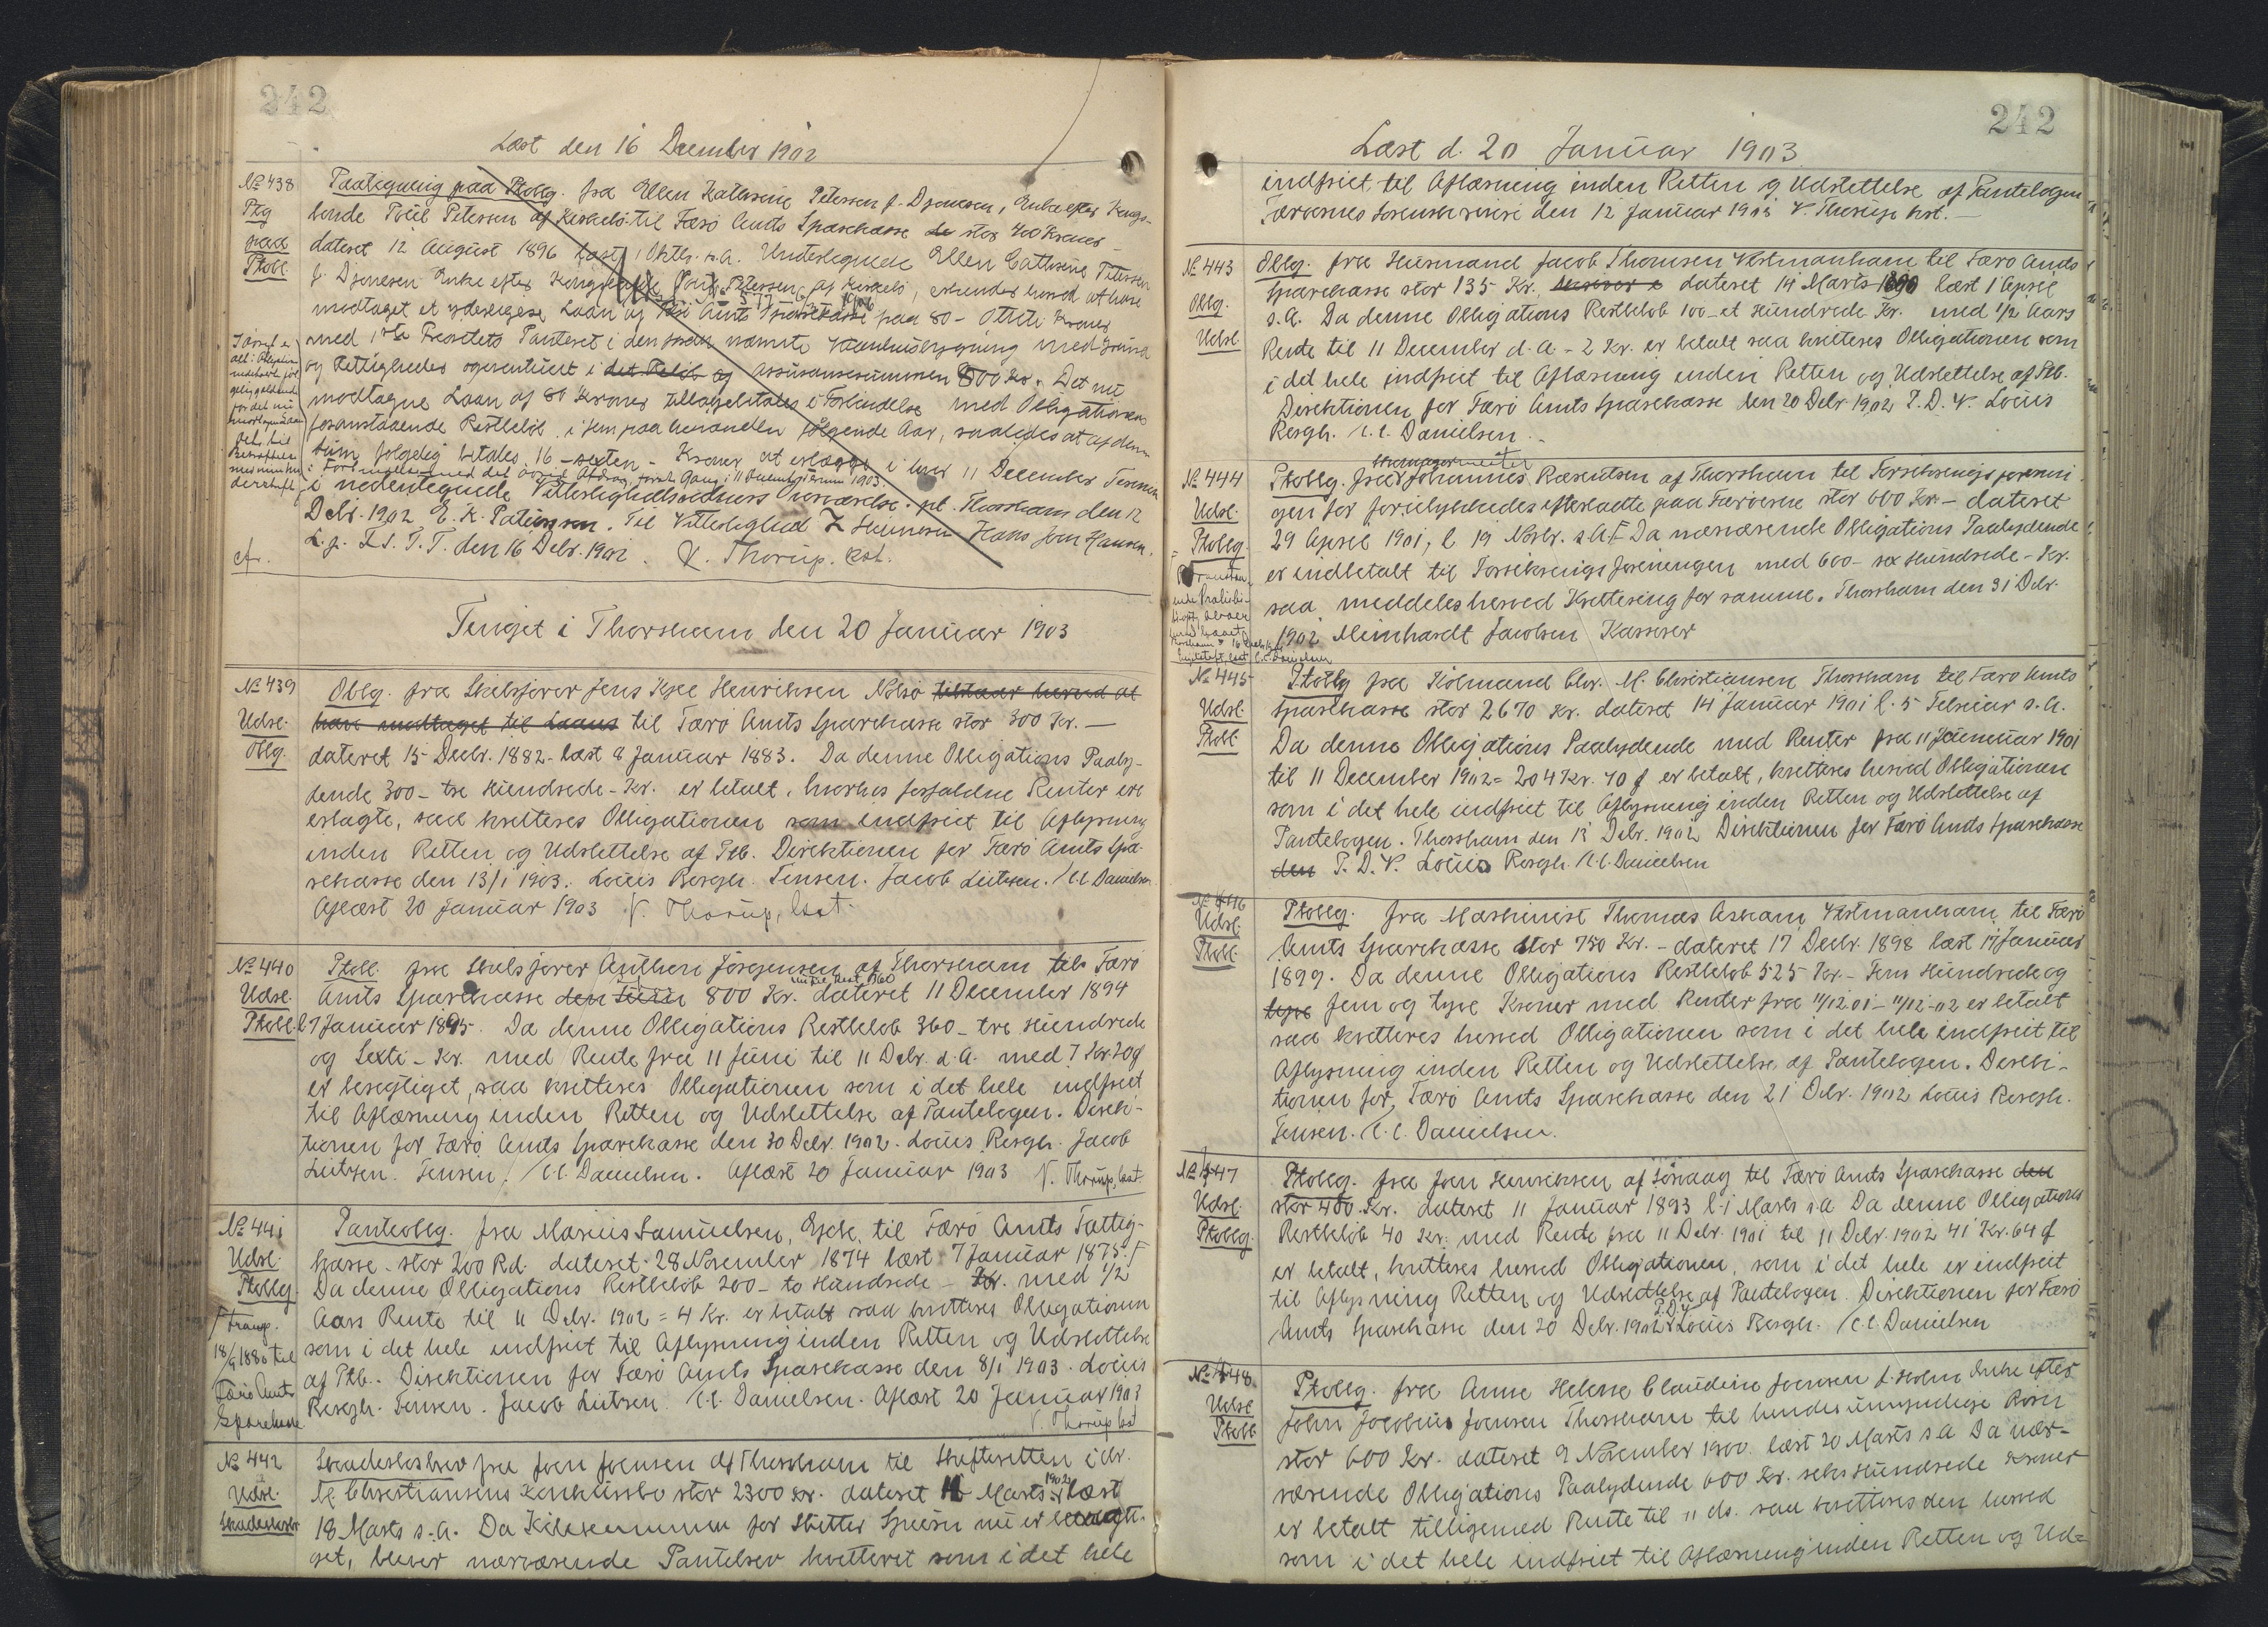 242
Læst den 16 December 1902
No 438
Ptg
paa
Ptobl.
Paategning paa Ptoblg. fra Ellen Kathrine Petersen f. Djonesen, Enke efter Kongs-
bonde Poul Petersen af Kirkebö til Færö Amts Sparekasse stor 400 Kroner
dateret 12 August 1896 læst 1 Oktbr. s.A. Undertegnede Ellen Cathrine Petersen
f. Djonesen Enke efter Kongsbonde Poul Petersen af Kirkebö, erkender herved at have
modtaget et yderligere Laan af Færö Amts Sparekasse paa 80 - Otteti Kroner
med 1ste Prioritets Panteret i den nævnte Vaaningsbygning med Grund
og Rettigheder og eventuelt i det Beløb og Assurancesummen 800 Kr. Det nu
modtagne Laan af 80 Kroner tilbagebetales i Forbindelse med Obligationens
foranstaaende Restbeløb i fem paa hinanden følgende Aar, saaledes at af denne
Sum følgelig betales 16 - sexten - Kroner at erlægge i hver 11 December Termin
i Forbindelse med det øvrige Afdrag, første Gang i 11 December Termin 1903.
i nedentegnede Vitterlighedsvidners Overværelse. pt. Thorshavn den 12
Debr. 1902 E. K. Patursson. Til Vitterlighed Hans Joen Hansen.
L. p. I. S. T. T. den 16 Debr. 1902. V. Thorup. kst.
cfr.
Tinget i Thorshavn den 20 Januar 1903
No 439
Udsl.
Oblg.
Oblg. fra Skibsfører Jens Kjee Henriksen Nolsö tilstaar herved at
have modtaget til Laans til Færö Amts Sparekasse stor 300 Kr. —
dateret 15 Decbr. 1882 - læst 8 Januar 1883. Da denne Obligations Paaly-
dende 300 - tre Hundrede - Kr. er betalt, hvorhos forfaldne Renter ere
erlagte, saa kvitteres Obligationen som indfriet til Aflysning
inden Retten og Udslettelse af Ptb. Direktionen for Færö Amts Spa-
rekasse den 13/1 1903. Louis Bergh. Jensen. Jacob Lützen. /C.C. Danielsen
Aflæst 20 Januar 1903 V. Thorup, kst.
No 440
Udsl.
Ptobl.
Ptobl. fra Skibsfører Anthon Jörgensen af Thorshavn til Færö
Amts Sparekasse den Sum 800 Kr. dateret 11 December 1894
l 7 Januar 1895. Da denne Obligations Restbeløb 360 - tre Hundrede
og Sexti - Kr. med Rente fra 11 Juni til 11 Debr. d.A. med 7 Kr. 20 ø
er berigtiget, saa kvitteres Obligationen som i det hele indfriet
til Aflæsning inden Retten og Udslettelse af Pantebogen. Direk-
tionen for Færö Amts Sparekasse den 30 Debr. 1902. Louis Bergh. Jacob
Lützen. Jensen. /C.C. Danielsen. Aflæst 20 Januar 1903 V. Thorup, kst.
No 441
Udsl.
Ptoblg.
Transp.
18/9 1880 til
Færö Amts
Sparekasse
Panteoblg. fra Marius Samuelsen, Ejde, til Færö Amts Fattig-
kasse - stor 200 Rd. dateret 28 November 1874 læst 7 Januar 1875.
Da denne Obligations Restbeløb 200 - to Hundrede - Kr. med 1/2
Aars Rente til 11 Debr. 1902 = 4 Kr. er betalt saa kvitteres Obligationen
som i det hele indfriet til Aflysning inden Retten og Udslettelse
af Ptb. Direktionen for Færö Amts Sparekasse den 8/1 1903. Louis
Bergh. Jensen. Jacob Lützen. C.C. Danielsen. Aflæst 20 Januar 1903
V. Thorup kst
No 442
Udsl.
Skadeslosbr
Skadesløsbrev fra Joen Joensen af Thorshavn til Skifteretten i Chr.
M. Christiansens Konkursbo stor 2300 Kr. dateret 11 Marts 1902 læst
18 Marts s.A. Da Købesummen for Slutter nu er berigti-
get, bliver nærværende Pantebrev kvitteret som i det hele
242
Læst d. 20 Januar 1903
indfriet til Aflæsning inden Retten og Udslettelse af Pantebogen
Færøernes Sorenskriveri den 12 Januar 1903 V. Thorup kst. —
No 443
Oblg.
Udsl.
Oblg. fra Husmand Jacob Thomsen Vestmanhavn til Færö Amts
Sparekasse stor 135 Kr. dateret 14 Marts 1890 læst 1 April
s.A. Da denne Obligations Restbeløb 100 - et Hundrede Kr. med 1/2 Aars
Rente til 11 December d.A - 2 Kr. er betalt saa kvitteres Obligationen som
i det hele indfriet til Aflæsning inden Retten og Udslettelse af Ptb.
Direktionen for Færö Amts Sparekasse den 20 Debr 1902 P.D.V. Louis
Bergh. C.C. Danielsen.
No 444
Udsl.
Ptoblg
Ptoblg. fra Skomagermester Johannes Rasmussen af Thorshavn til Forsikringsforenin
gen for forulykkedes efterladte paa Færøerne stor 600 Kr. - dateret
29 April 1901, l 19 Novbr. s.A. Da nærværende Obligations Paalydende
er indbetalt til Forsikringsforeningen med 600 - sex Hundrede - Kr.
saa meddeles herved Kvittering for samme. Thorshavn den 31 Debr.
1902 Meinhardt Jacobsen Kasserer
No 445
Udsl.
Ptobl
Ptoblg fra Købmand Chr. M. Christiansen Thorshavn til Færö Amts
Sparekasse stor 2670 Kr. dateret 14 Januar 1901 l. 5 Februar s.A.
Da denne Obligations Paalydende med Renter fra 11 Januar 1901
til 11 December 1902 = 204 Kr. 70 ø er betalt, kvitteres herved Obligationen
som i det hele indfriet til Aflysning inden Retten og Udslettelse af
Pantebogen. Thorshavn den 13 Debr. 1902 Direktionen for Færö Amts Sparekasse
den P.D.V. Louis Bergh. /C.C. Danielsen
No 446
Udsl.
Ptobl.
Ptoblg. fra Maskinist Thomas Askam, Vestmanhavn, til Færö
Amts Sparekasse stor 750 Kr. - dateret 17 Decbr. 1898 læst 17 Januar
1899. Da denne Obligations Restbeløb 525 Kr. - Fem Hundrede og
tyve fem og tyve Kroner med Renter fra 11/12.01 - 11/12-02 er betalt
saa kvitteres herved Obligationen som i det hele indfriet til
Aflysning inden Retten og Udslettelse af Pantebogen. Direk-
tionen for Færö Amts Sparekasse den 21 Debr. 1902 Louis Bergh.
Jensen. C.C. Danielsen.
No 447
Udsl.
Ptoblg.
Ptoblg. fra Joen Henriksen af Sörvaag til Færö Amts Sparekasse den
stor 400 Kr. dateret 11 Januar 1893 l. 1 Marts s.A Da denne Obligations
Restbeløb 40 Kr. med Rente fra 11 Debr. 1901 til 11 Debr. 1902 41 Kr. 64 ø
er betalt, kvitteres herved Obligationen, som i det hele er indfriet
til Aflysning Retten og Udslettelse af Pantebogen. Direktionen for Færö
Amts Sparekasse den 20 Debr. 1902 P.D.V. Louis Bergh. /C.C. Danielsen
No 448
Udsl
Ptobl
Ptoblg. fra Anne Helene Claudine Joensen f. Holm Enke efter
John Jacobius Joensen Thorshavn til hendes umyndige Børn
stor 600 Kr. dateret 9 November 1900. læst 20 Marts s.A Da nær-
værende Obligations Paalydende 600 Kr. seks Hundrede Kroner
er betalt tilligemed Rente til 11 ds. saa kvitteres den herved
som i det hele indfriet til Aflæsning inden Retten og Ud-